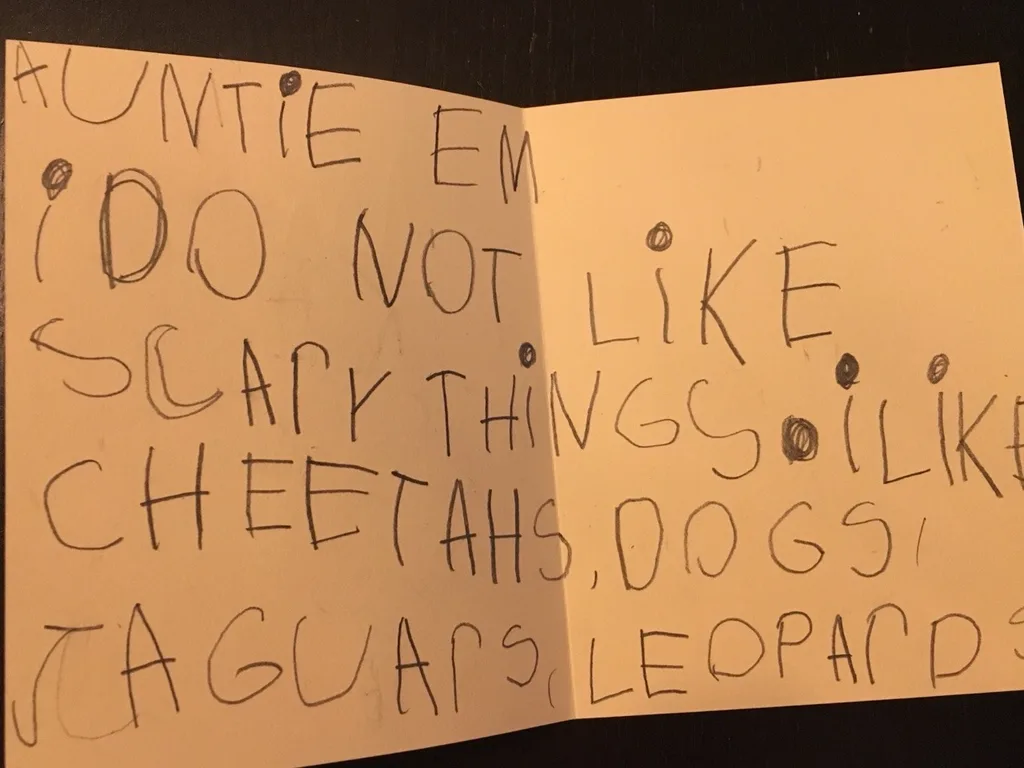 AUNTiE EM
i DO NOT LiKE
SCArY THiNGS. i LiKE
CHEETAHS, DOGS,
JAGUArS, LEOPArDS